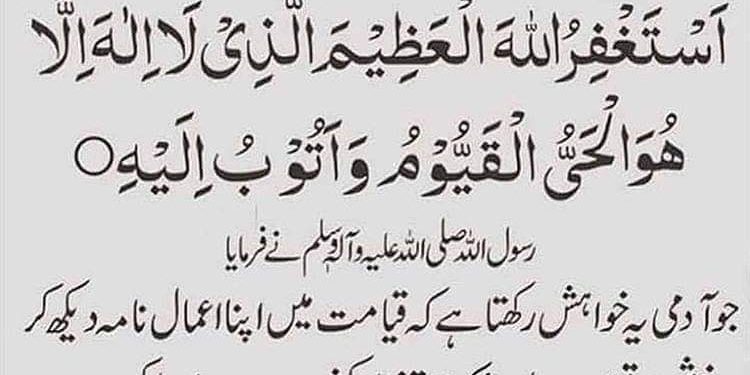 اَسْتَغْفِرُ اللّٰهَ الْعَظِيْمَ الَّذِيْ لَا اِلٰهَ اِلَّا
هُوَ الْحَيُّ الْقَيُّوْمُ وَاَتُوْبُ اِلَيْهِ ○
رسول اللہ صلی اللہ علیہ وآلہٖ وسلم نے فرمایا
جو آدمی یہ خواہش رکھتا ہے کہ قیامت میں اپنا اعمال نامہ دیکھ کر